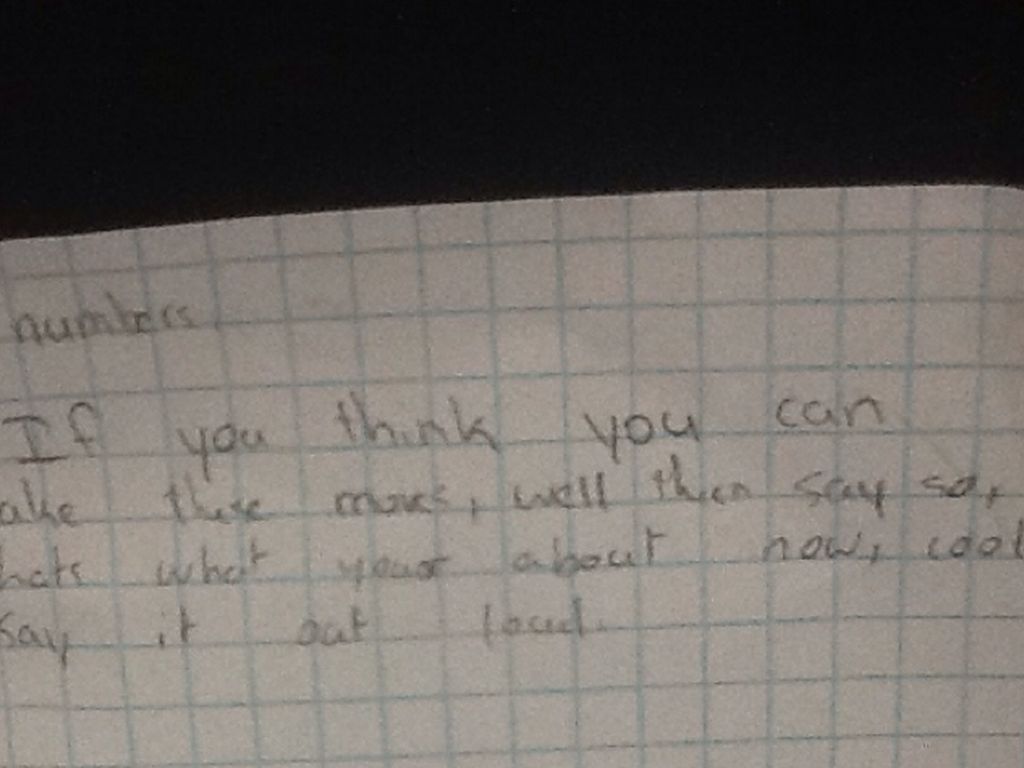 numbers
If you think you can
ake these moves, well then say so,
hats what your about now, cool
say it out loud.